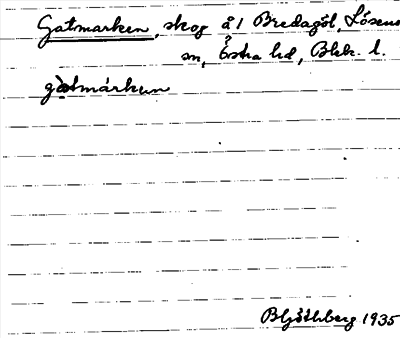 Gatmarken, skog å 1 Bredagöl, Lösens
sn, Östra hd, Blek. l.
gàtmárken
B Hjöthberg 1935